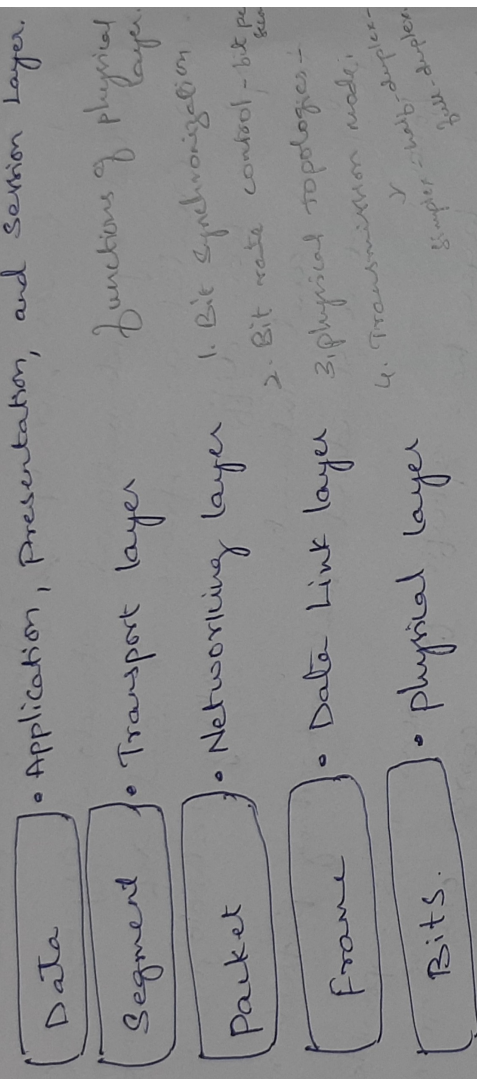 Data • Application, Presentation, and Session Layer.
Segment • Transport layer
Packet • Networking layer
Frame • Data Link layer
Bits. • physical layer
functions of physical
layer.
1. Bit Synchronization
2. Bit rate control, - bit per
3. physical topologies -
4. Transmission mode,
simplex - half-duplex -
full-duplex